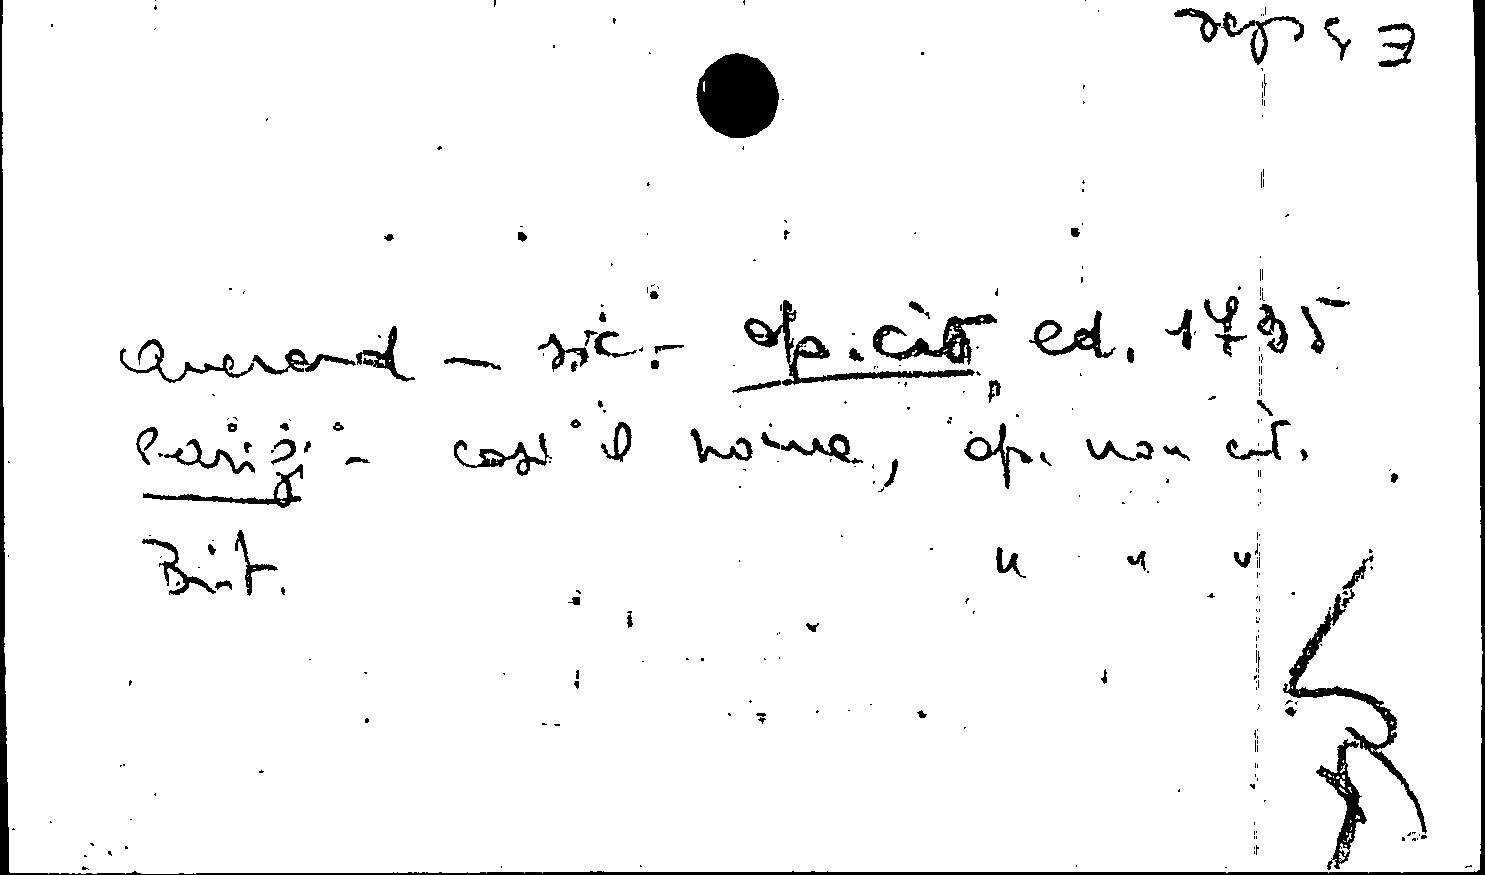 Querard - sic: - op. cit. ed. 1735
Parigi - così il nome, op. non cit.
Brit. " " "